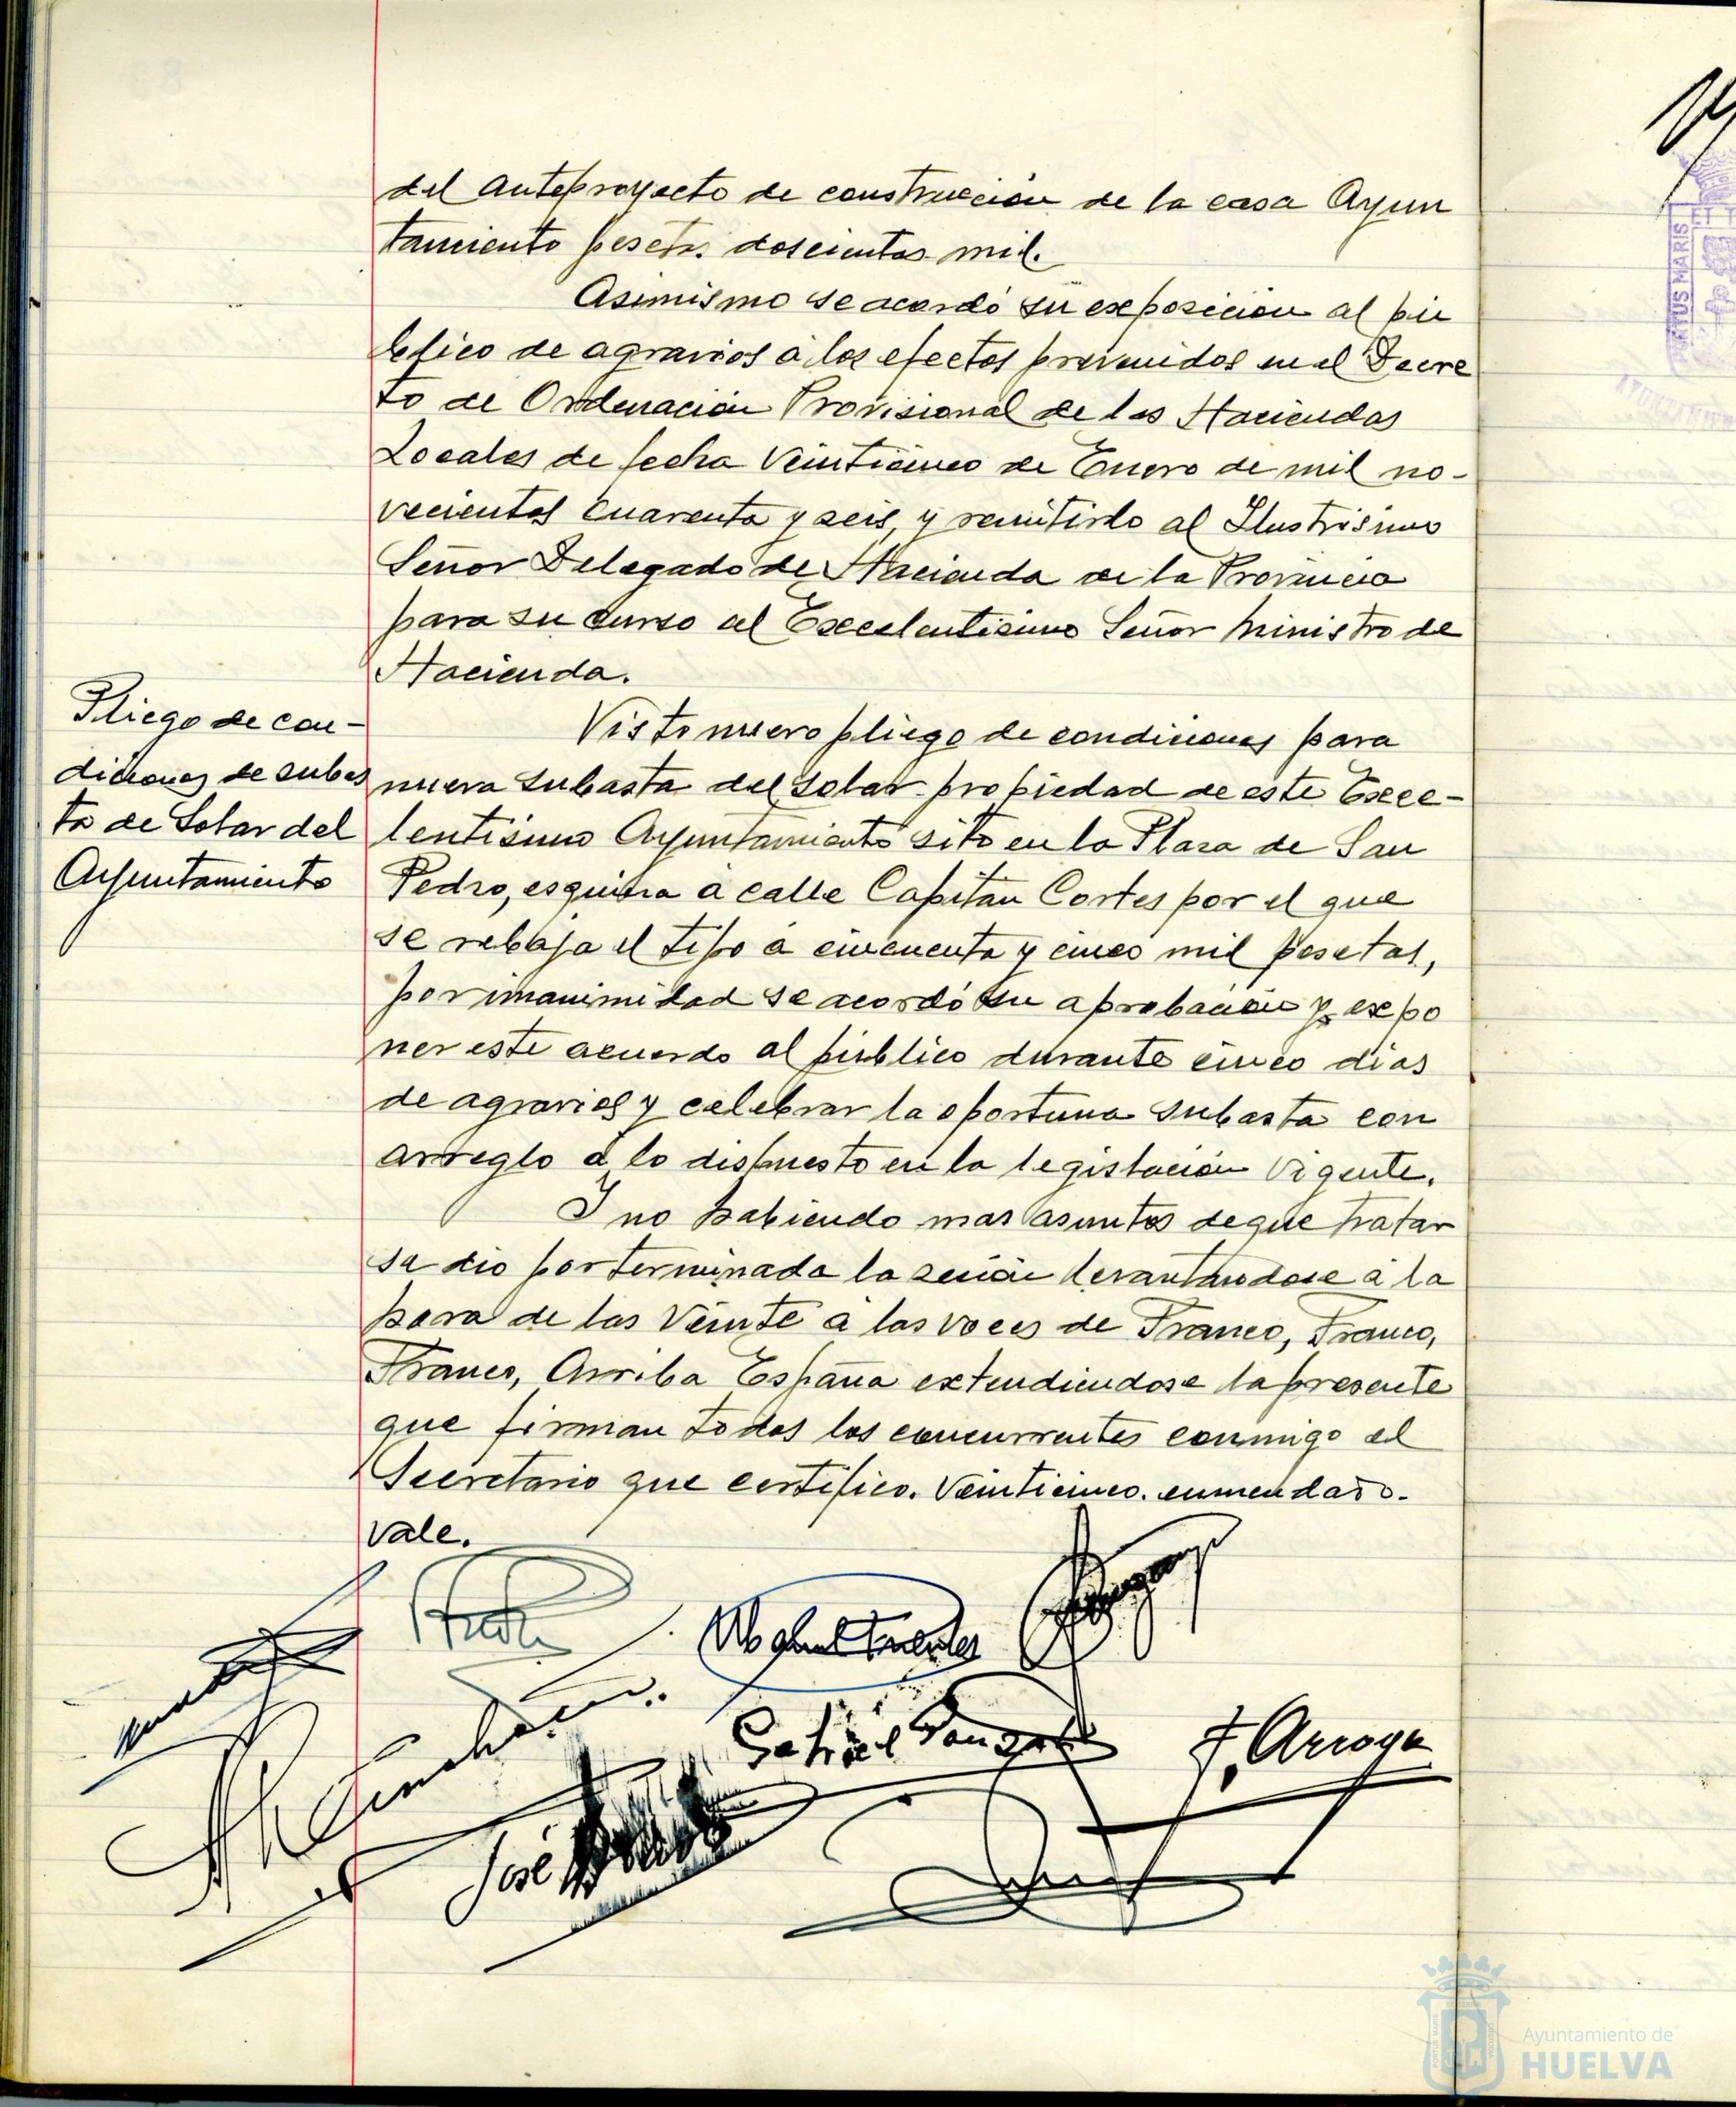 del anteproyecto de construccion de la casa Ayun
tamiento pesetas doscientas mil.
Asimismo se acordó su exposicion al pú
blico de agravios a los efectos prevenidos en el Decre
to de Ordenación Provisional de las Haciendas
Locales de fecha Veinticinco de Enero de mil no-
vecientos cuarenta y seis, y remitirlo al Ilustrisimo
Señor Delegado de Hacienda de la Provincia
para su curso al Excelentisimo Señor Ministro de
Hacienda.
Pliego de con-
diciones de subas
ta de Solar del
Ayuntamiento
Visto nuevo pliego de condiciones para
nueva subasta del solar propiedad de este Exce-
lentisimo Ayuntamiento sito en la Plaza de San
Pedro, esquina a calle Capitan Cortes por el que
se rebaja el tipo a cincuenta y cinco mil pesetas,
por unanimidad se acordó su aprobación y expo
ner este acuerdo al público durante cinco dias
de agravios y celebrar la oportuna subasta con
arreglo a lo dispuesto en la legislación vigente.
Y no habiendo mas asuntos de que tratar
se dio por terminada la sesión levantandose a la
hora de las Veinte a las voces de Franco, Franco,
Franco, Arriba España extendiendose la presente
que firman todos los concurrentes conmigo el
Secretario que certifico. Veinticinco. enmendado.
vale.
Gabriel
F. Arroyo
José
PORTUS MARIS ET
AYUNTAMIEN
Ayuntamiento de
HUELVA